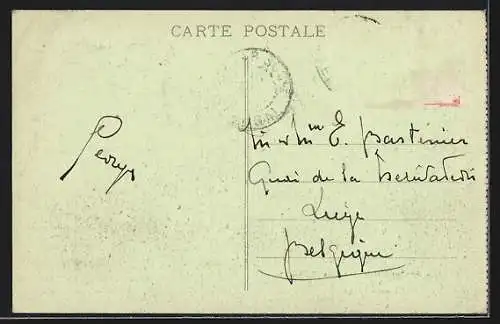 CARTE POSTALE
M. & Mme E. Bastinier
Quai de la Dérivation
Liège
Belgique
Georges